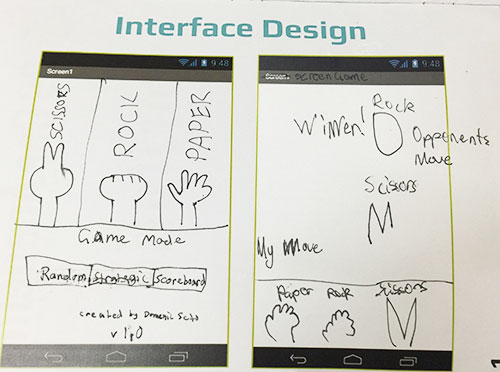 Interface Design
9:48
Screen1
SCISSORS
ROCK
PAPER
Game Mode
Random Strategic Scoreboard
created by Domenic Scito
v 1.0
9:48
Screen Game
Rock
Winner!
Opponents
Move
Scissors
My Move
Paper Rock Scissors